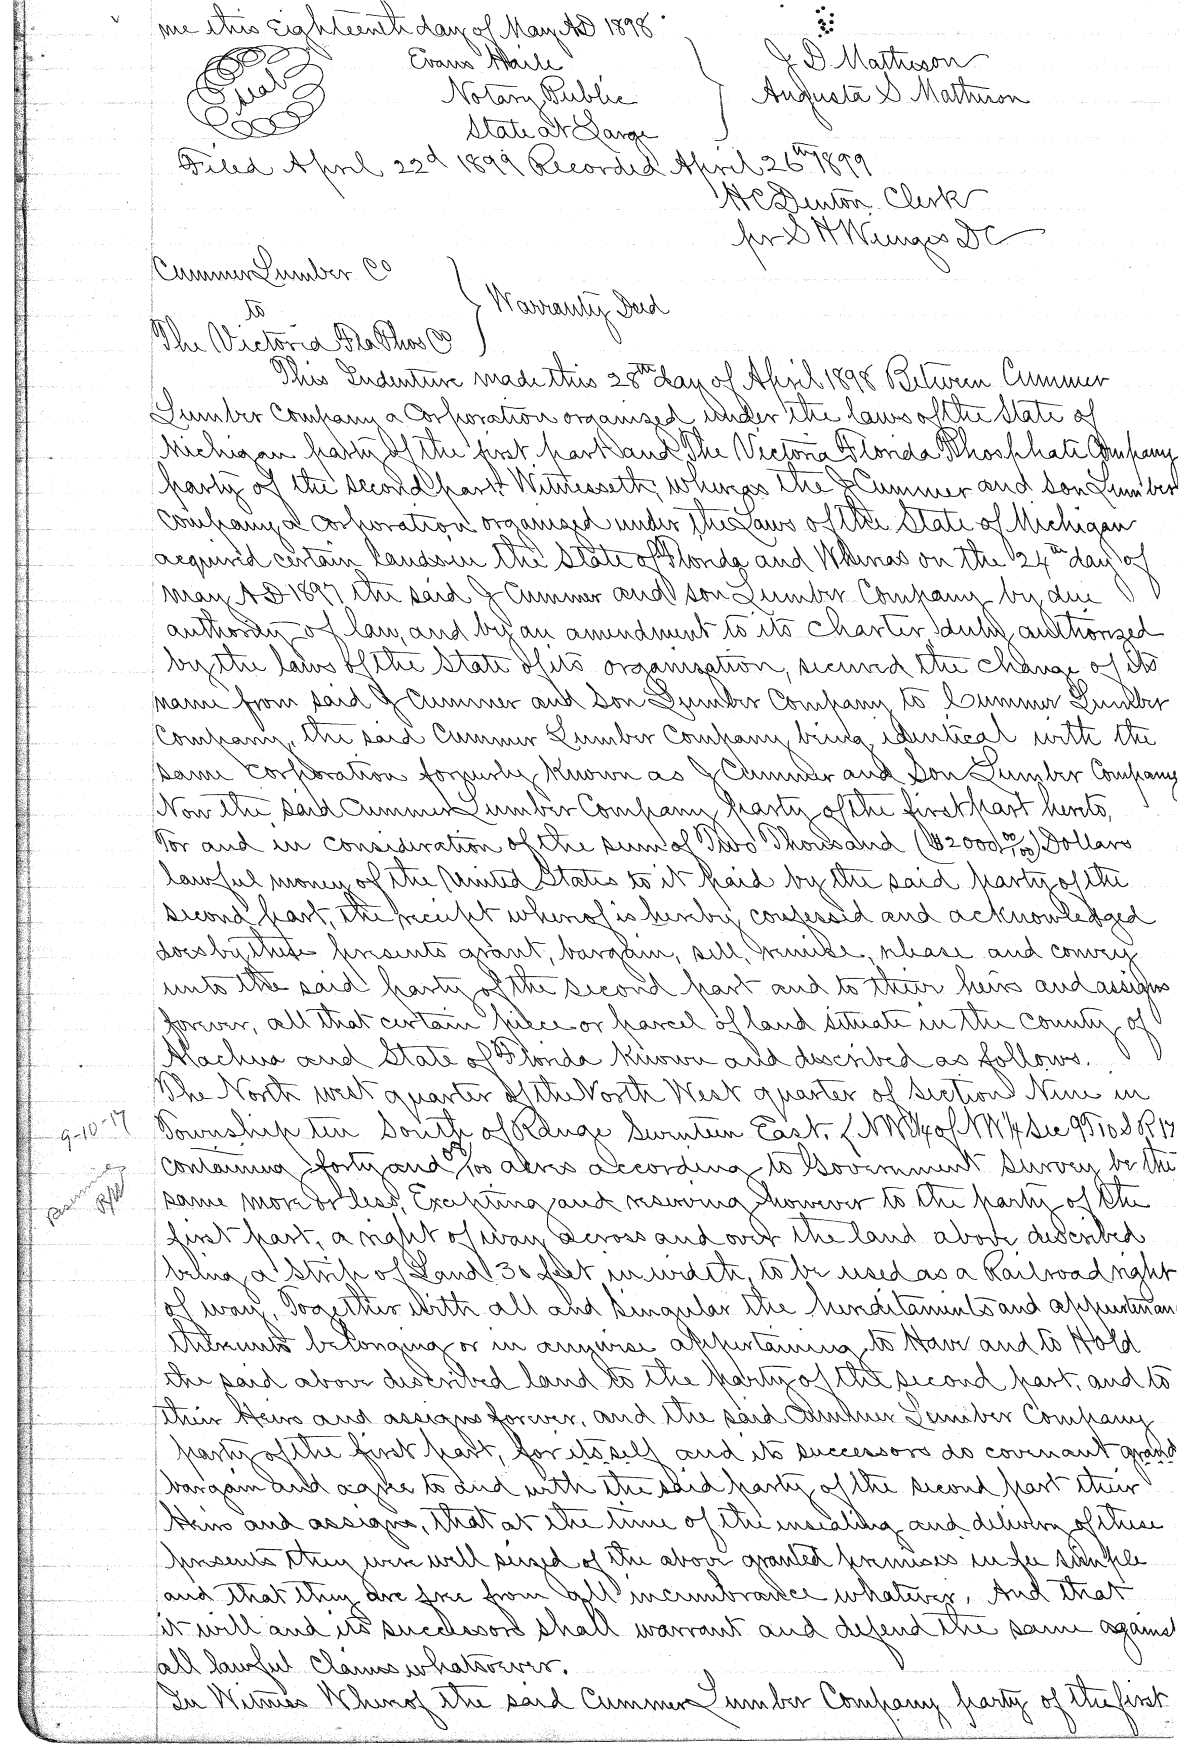 me this Eighteenth day of May AD 1898
Seal
Evans Haile
Notary Public
State at Large
J D Matheson
Augusta S Matheson
Filed April 22d 1899 Recorded April 26th 1899
H C Denton Clerk
pr S H Wienges DC
Cummer Lumber Co
to
The Victoria Fla Phos Co
Warranty Deed
This Indenture made this 28th day of April 1898 Between Cummer
Lumber Company a Corporation organized under the laws of the State of
Michigan party of the first part and The Victoria Florida Phosphate Company
party of the second part Witnesseth, whereas the J Cummer and Son Lumber
Company a Corporation organized under the Laws of the State of Michigan
acquired certain lands in the State of Florida and Whereas on the 24th day of
May AD 1897 the said J Cummer and son Lumber Company by due
authority of law, and by an amendment to its charter duly authorized
by the laws of the State of its organization, secured the change of its
name from said J Cummer and Son Lumber Company to Cummer Lumber
Company, the said Cummer Lumber Company being identical with the
same corporation formerly known as J Cummer and Son Lumber Company
Now the said Cummer Lumber Company party of the first part hereto,
For and in consideration of the sum of Two Thousand ($2000 00/100) Dollars
lawful money of the United States to it paid by the said party of the
second part, the receipt whereof is hereby confessed and acknowledged
does by these presents grant, bargain, sell, remise, release and convey
unto the said party of the second part and to their heirs and assigns
forever, all that certain piece or parcel of land situate in the county of
Alachua and State of Florida known and described as follows.
The North west quarter of the North West quarter of Section Nine in
9-10-17
Township ten South of Range Seventeen East. (NW 1/4 of NW 1/4 Sec 9 T 10 S R 17
containing forty and 00/100 acres according to Government Survey be the
Reserving
R/W
same more or less, Excepting and reserving however to the party of the
first part, a right of way across and over the land above described
being a Strip of Land 30 feet in width, to be used as a Railroad right
of way, Together with all and singular the hereditaments and appurtenan
thereunto belonging or in anywise appertaining, to Have and to Hold
the said above described land to the party of the second part, and to
their Heirs and assigns forever, and the said Cummer Lumber Company
party of the first part, for itself and its successors do covenant grand
bargain and agree to and with the said party of the second part their
Heirs and assigns, that at the time of the ensealing and delivery of these
presents they were well seized of the above granted premises in fee simple
and that they are free from all incumbrance whatever, And that
it will and its successors shall warrant and defend the same against
all lawful Claims whatsoever.
In Witness Whereof the said Cummer Lumber Company party of the first